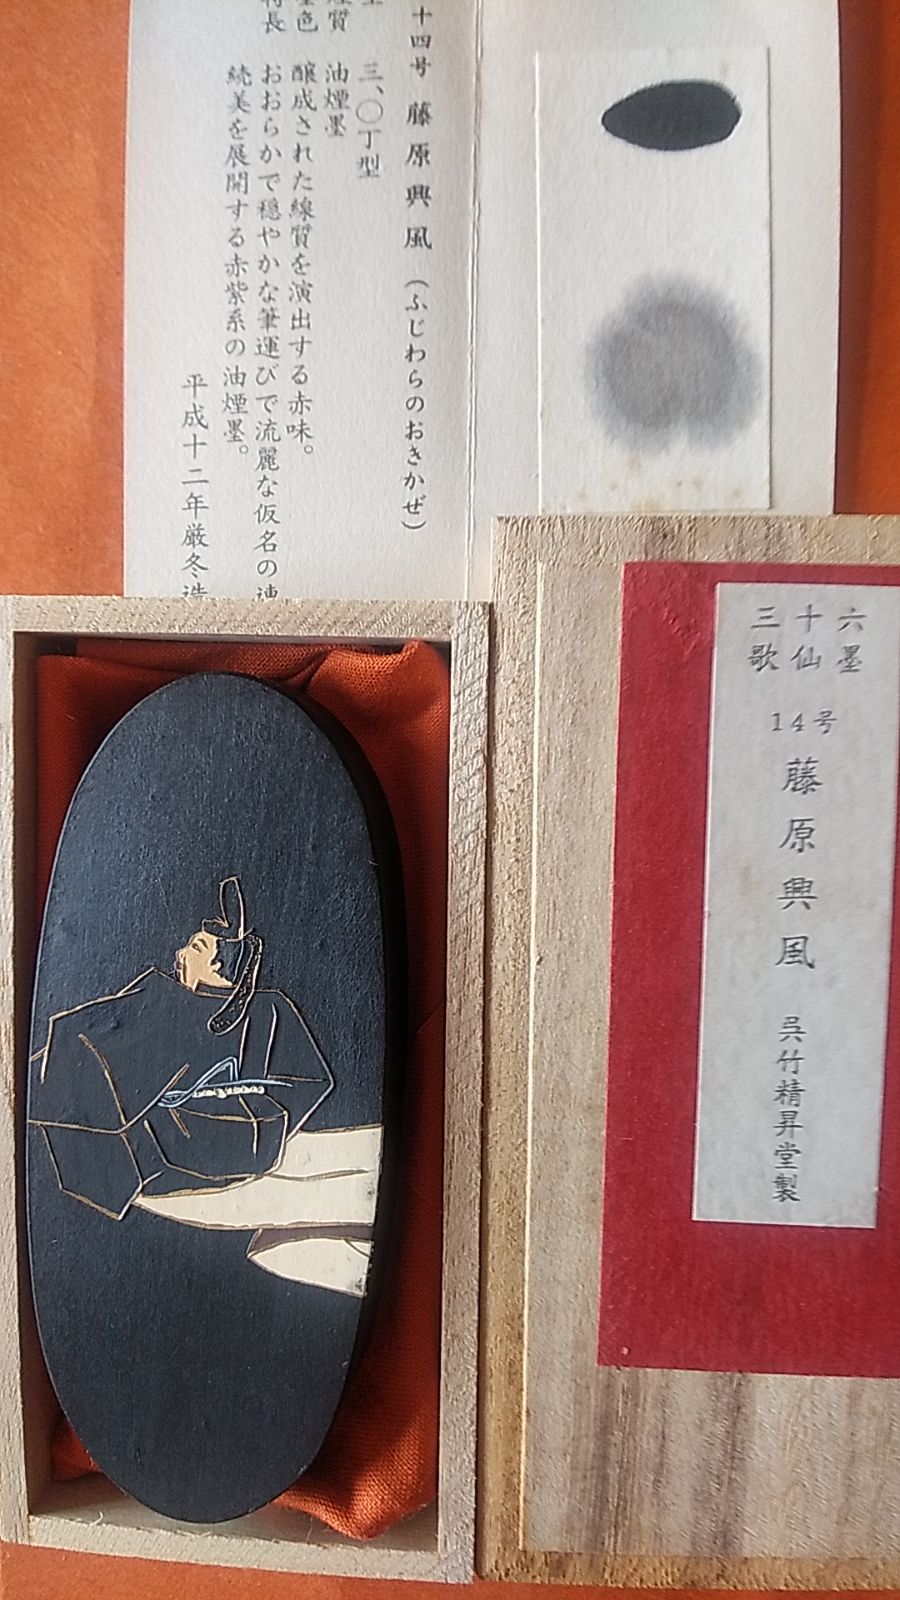 十四号 藤原興風 (ふじわらのおきかぜ)
三、〇丁型
質 油煙墨
色 醸成された線質を演出する赤味。
特長 おおらかで穏やかな筆運びで流麗な仮名の連
続美を展開する赤紫系の油煙墨。
平成十二年厳冬造
三十六
歌仙墨
14号
藤原興風
呉竹精昇堂製